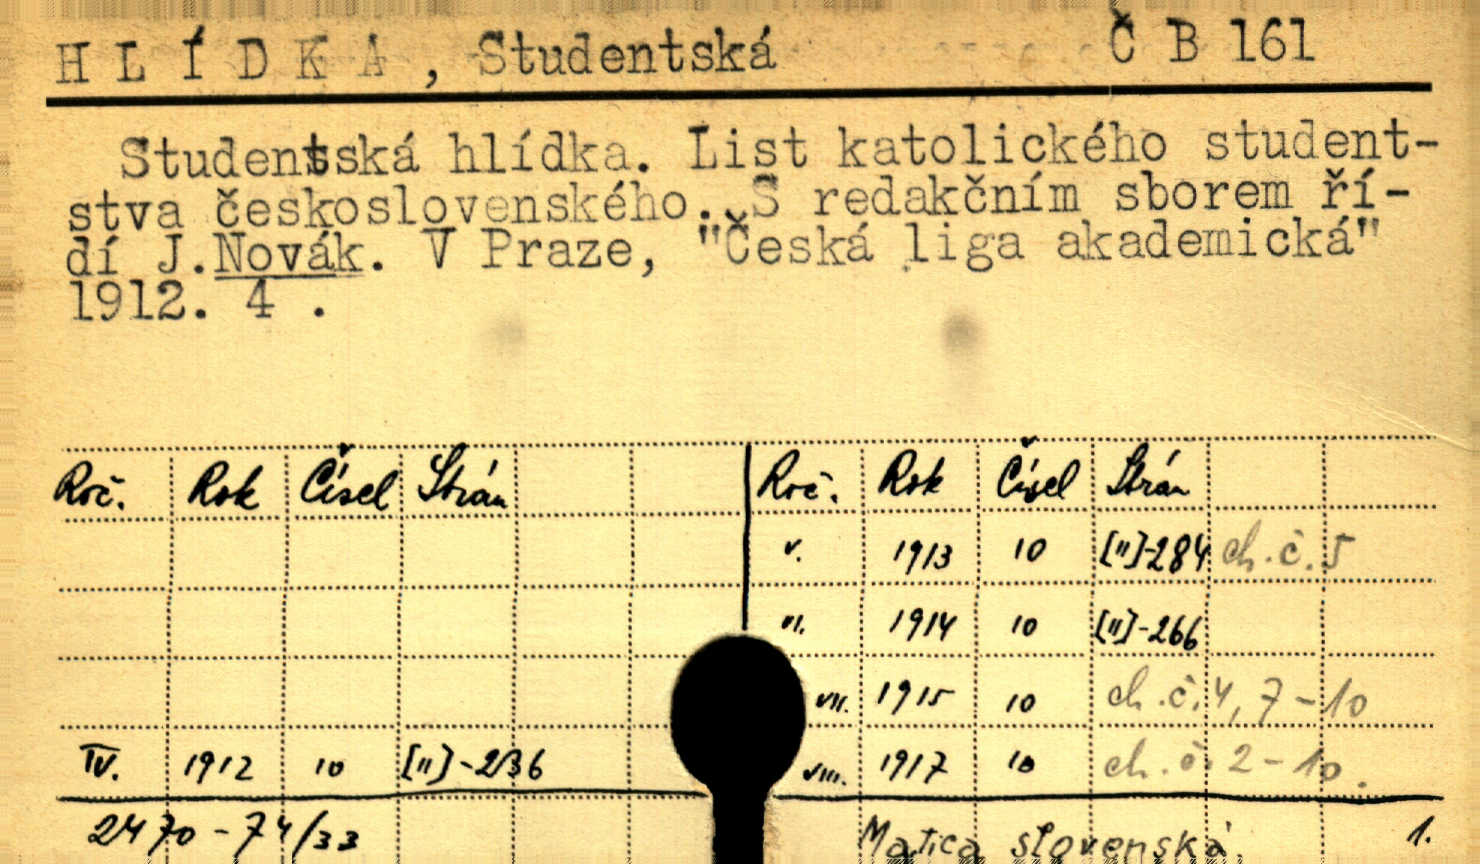 HLÍDKA, Studentská Č B 161
Studentská hlídka. List katolického student-
stva československého. S redakčním sborem ří-
dí J.Novák. V Praze, "Česká liga akademická"
1912. 4 .
Roč. Rok Čísel Strán Roč. Rok Čísel Strán
V. 1913 10 [II]-284 ch.č.5
VI. 1914 10 [II]-266
VII. 1915 10 ch.č.4,7-10
IV. 1912 10 [II]-236 VIII. 1917 10 ch.č.2-10.
2470-74/33 Matica slovenská. 1.